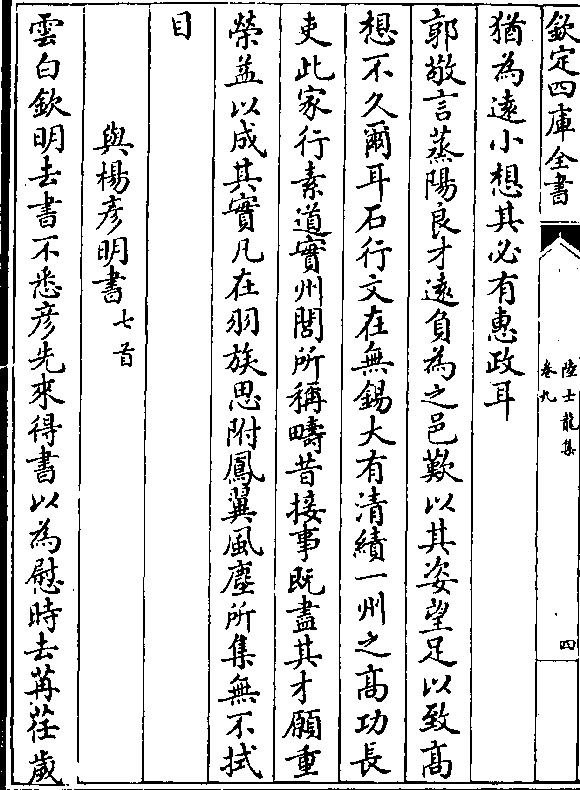 欽定四庫全書
陸士龍集
卷九
四
猶為遠小想其必有惠政耳
郭敬言蒸陽良才遠負為之邑歎以其姿望足以致高
想不久爾耳石行文在無錫大有清績一州之高功長
吏此家行素道實州閭所稱疇昔接事既盡其才願重
榮益以成其實凡在羽族思附鳳翼風塵所集無不拭
目
與楊彦明書七首
雲白欽明去書不悉彦先來得書以為慰時去荏苒歲